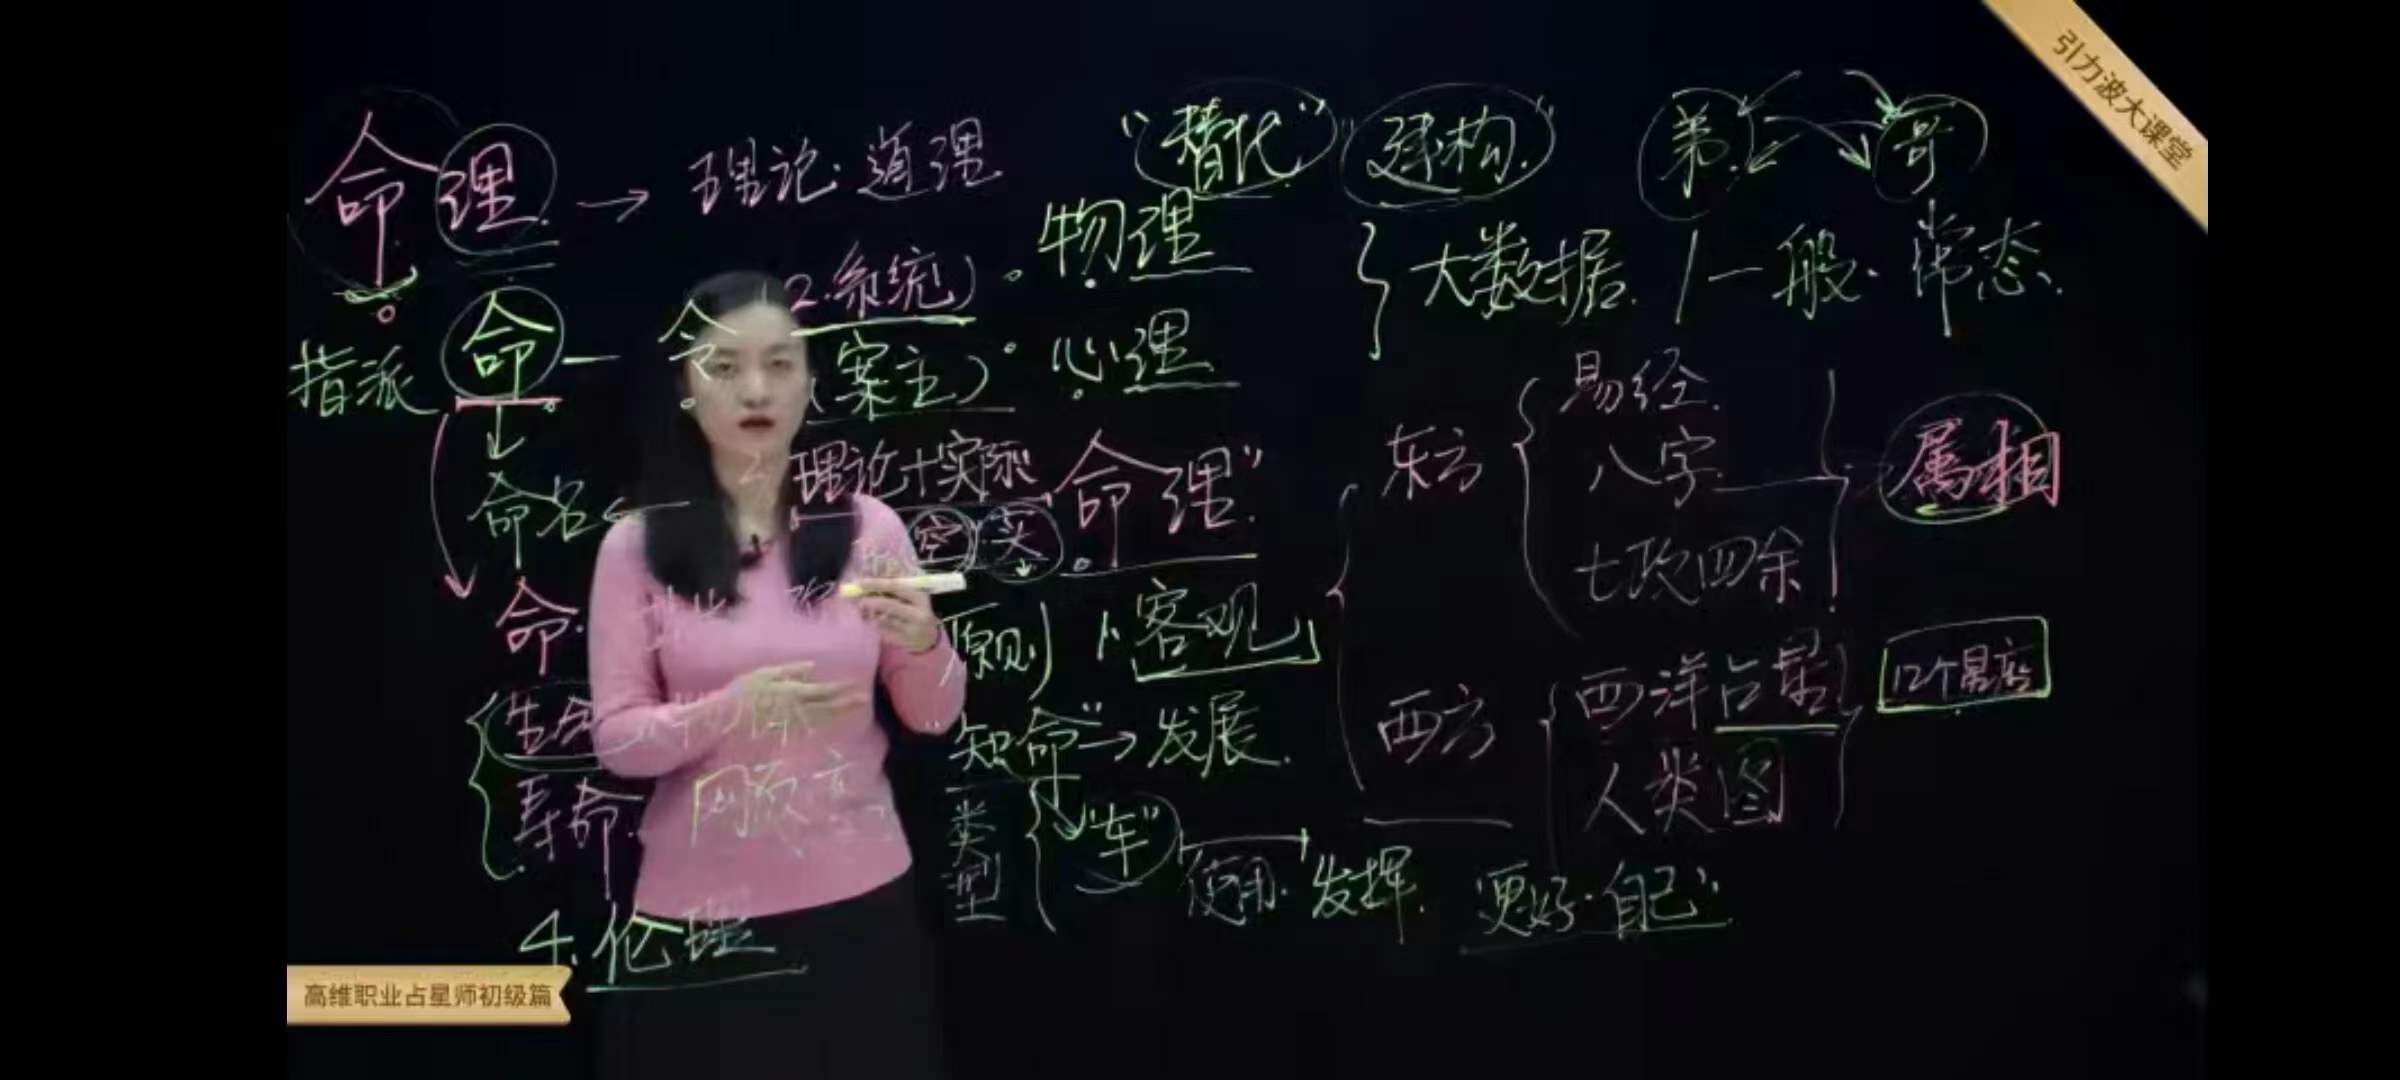 引力波大课堂
命理 → 理论·道理
"替代" "建构"
弟 哥
2.系统)
·物理
大数据 / 一般·常态
指派 命 — 令
(案主)
·心理
命名
理论+实际
空 实
"命理"
东方
易经
八字
七政四余
属相
命
原则)
"客观"
生命
物体
"知命" → 发展
西方
西洋占星
人类图
12个星座
寿命
网页
类型
"车"
使用·发挥
更好·自己"
4.伦理
高维职业占星师初级篇